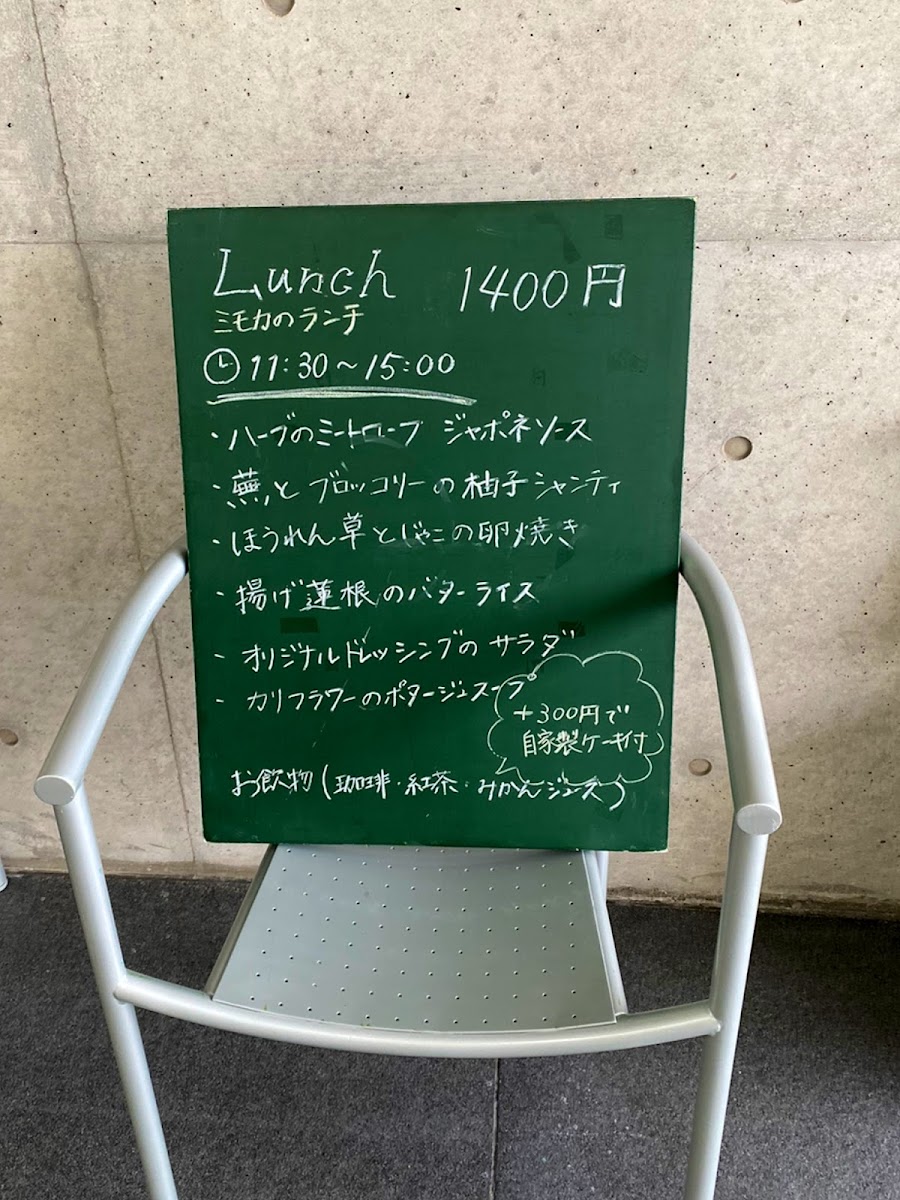 Lunch 1400円
ミモカのランチ
11:30〜15:00
・ハーブのミートローフ ジャポネソース
・蕪とブロッコリーの柚子シャンティ
・ほうれん草とじゃこの卵焼き
・揚げ蓮根のバターライス
・オリジナルドレッシングのサラダ
・カリフラワーのポタージュスープ
+300円で
自家製ケーキ付
お飲物(珈琲・紅茶・みかんジュース)